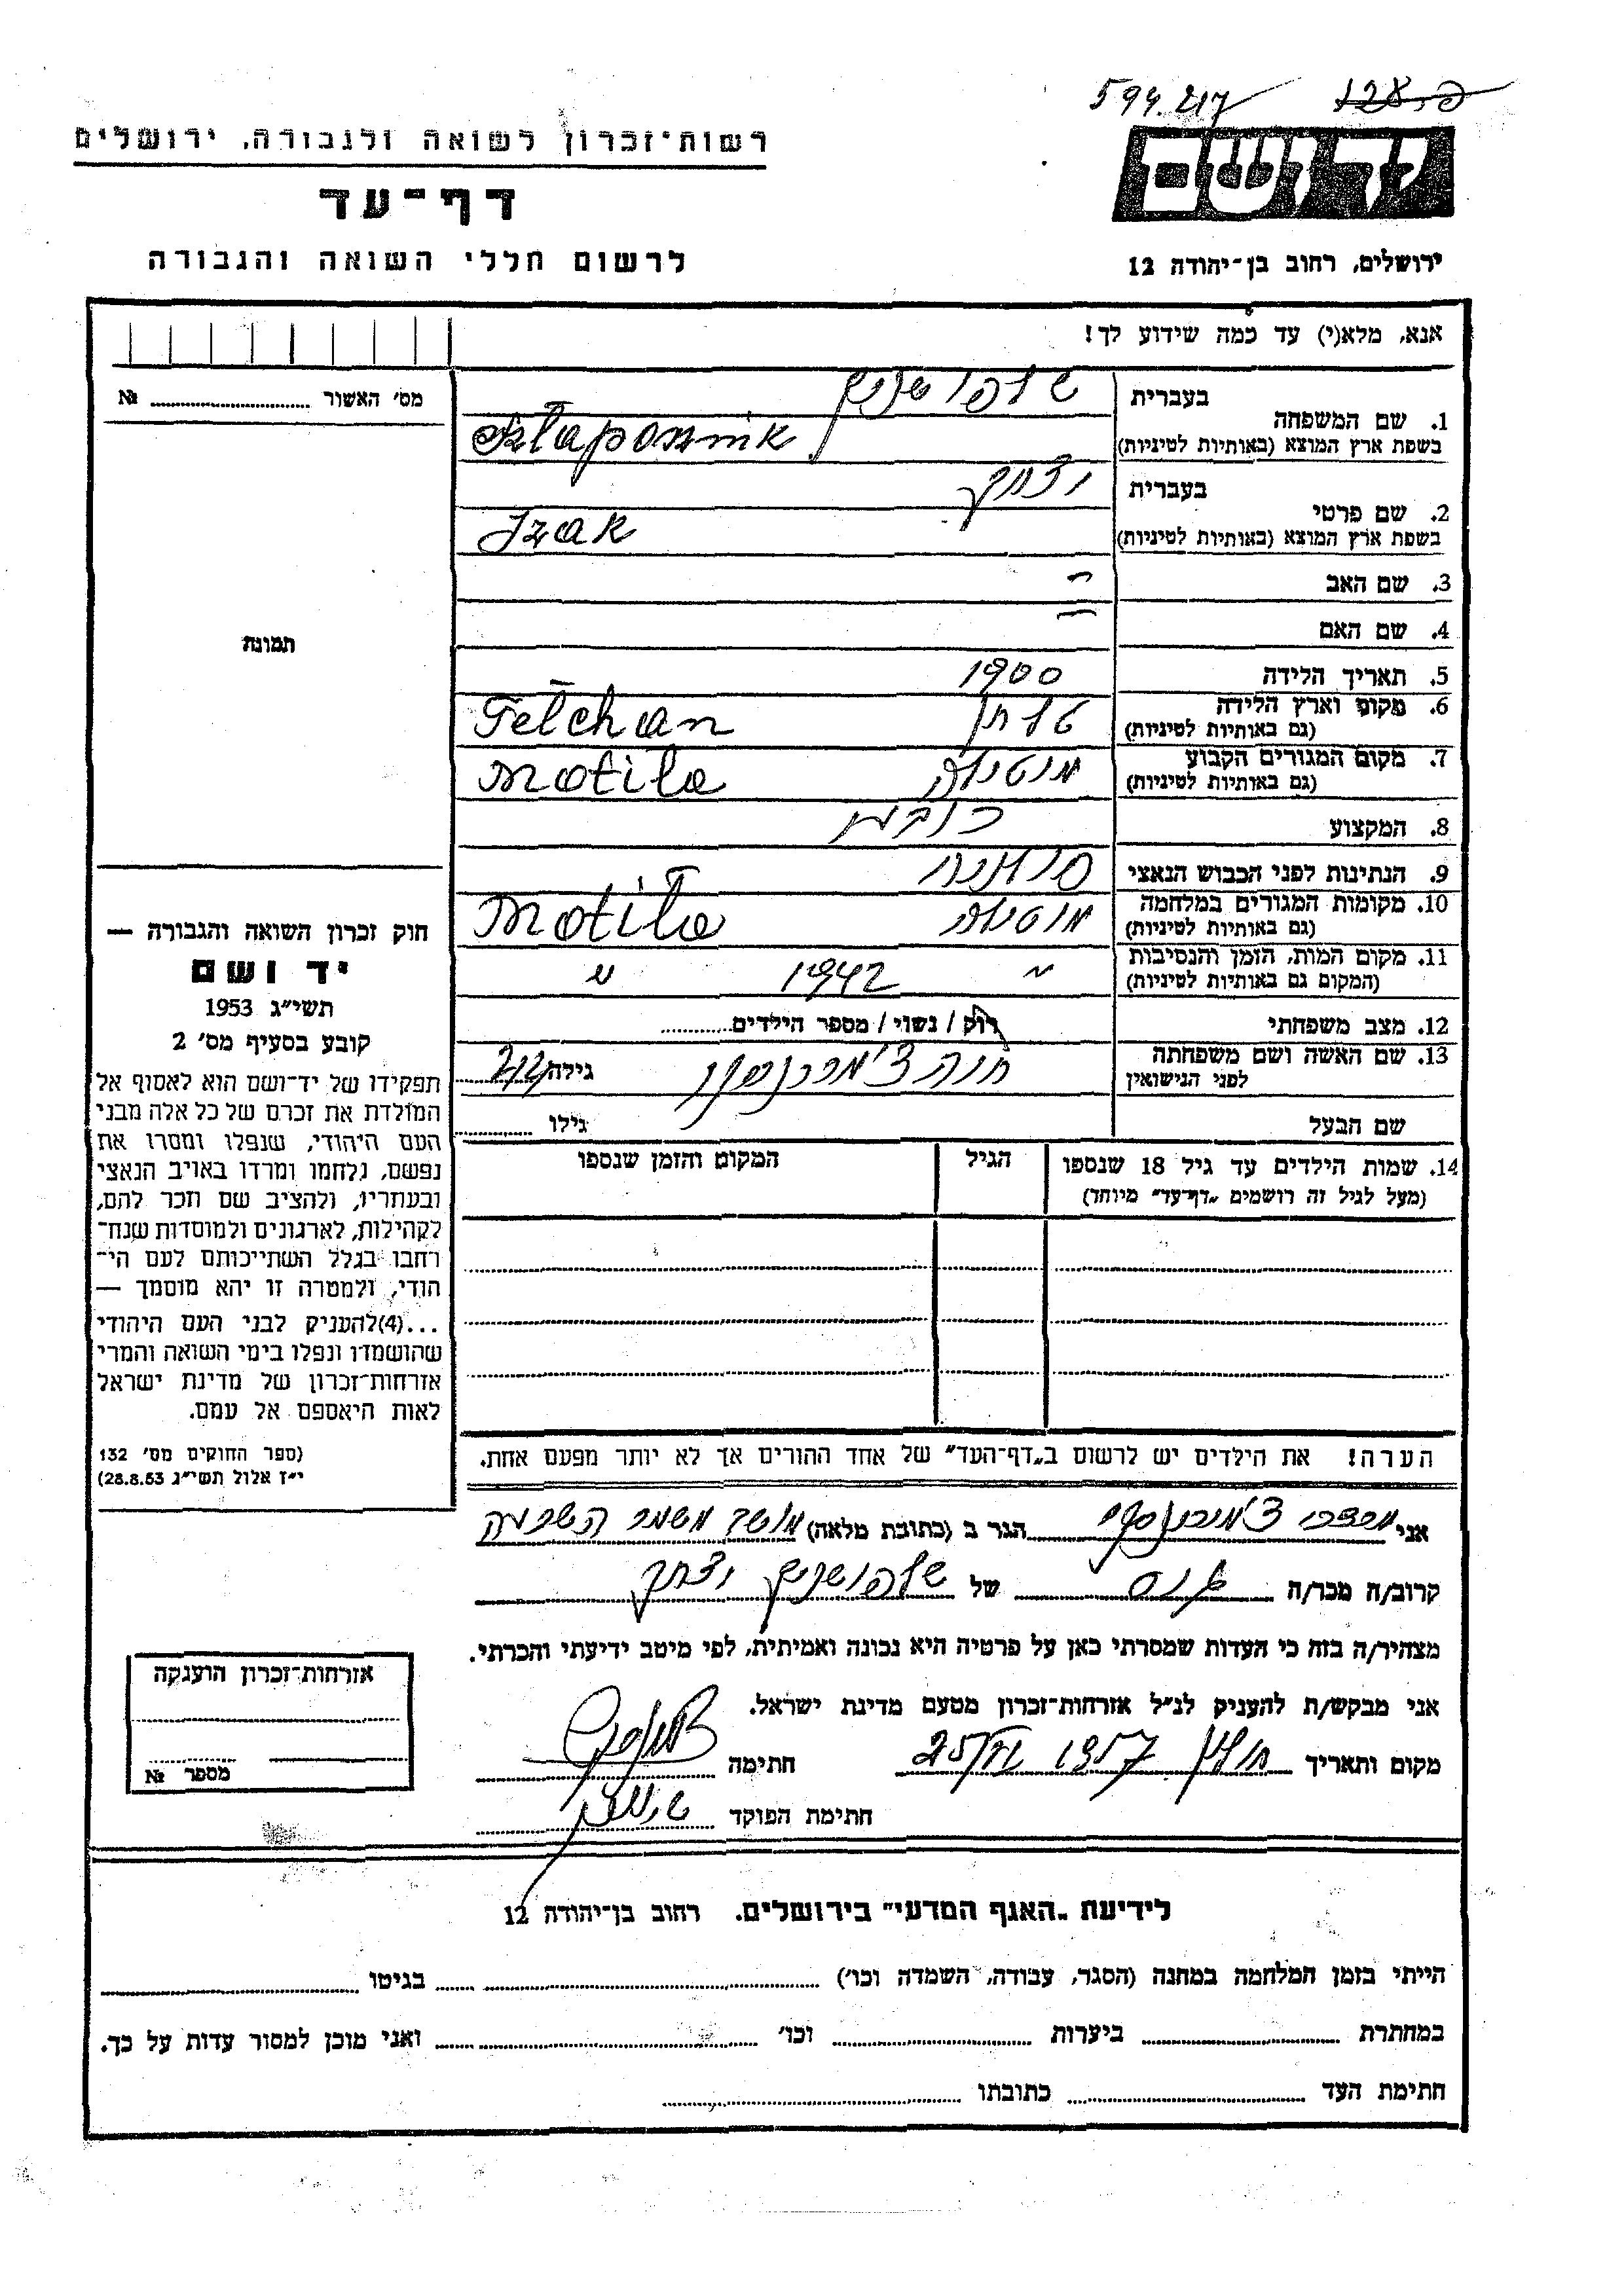 594.217 פ. 128
רשות־זכרון לשואה ולגבורה, ירושלים
דף־עד
לרשום חללי השואה והגבורה
יד ושם
ירושלים, רחוב בן־יהודה 12
אנא, מלא(י) עד כמה שידוע לך!
מס׳ האשור № 
תמונה
1. שם המשפחה
בעברית שלפושניק
בשפת ארץ המוצא (באותיות לטיניות) Szlaposznik
2. שם פרטי
בעברית יצחק
בשפת ארץ המוצא (באותיות לטיניות) Izak
3. שם האב –
4. שם האם –
5. תאריך הלידה 1900
6. מקום וארץ הלידה טלחן Telchan
(גם באותיות לטיניות)
7. מקום המגורים הקבוע מוטילה Motila
(גם באותיות לטיניות)
8. המקצוע
9. הנתינות לפני הכבוש הנאצי פולנית
10. מקומות המגורים במלחמה מוטילה Motila
(גם באותיות לטיניות)
11. מקום המות, הזמן והנסיבות 1942
(המקום גם באותיות לטיניות)
12. מצב משפחתי רוק / נשוי / מספר הילדים
13. שם האשה ושם משפחתה לפני הנישואין חנה גילה
שם הבעל גילו
14. שמות הילדים עד גיל 18 שנספו הגיל המקום והזמן שנספו
(מעל לגיל זה רושמים „דף־עד״ מיוחד)
הערה! את הילדים יש לרשום ב„דף־העד״ של אחד ההורים אך לא יותר מפעם אחת.
חוק זכרון השואה והגבורה —
יד ושם
תשי״ג 1953
קובע בסעיף מס׳ 2
תפקידו של יד־ושם הוא לאסוף אל
המולדת את זכרם של כל אלה מבני
העם היהודי, שנפלו ומסרו את
נפשם, נלחמו ומרדו באויב הנאצי
ובעוזריו, ולהציב שם וזכר להם,
לקהילות, לארגונים ולמוסדות שנח־
רחבו בגלל השתייכותם לעם הי־
הודי, ולמטרה זו יהא מוסמך —
...(4)להעניק לבני העם היהודי
שהושמדו ונפלו בימי השואה והמרי
אזרחות־זכרון של מדינת ישראל
לאות היאספם אל עמם.
(ספר החוקים מס׳ 132
י״ז אלול תשי״ג 28.8.53)
אני מרדכי הגר ב (כתובת מלאה) מושב משמר השבעה
קרוב/ה מכר/ה גיס של שלפושניק יצחק
מצהיר/ה בזה כי העדות שמסרתי כאן על פרטיה היא נכונה ואמיתית, לפי מיטב ידיעתי והכרתי.
אני מבקש/ת להעניק לנ״ל אזרחות־זכרון מטעם מדינת ישראל.
מקום ותאריך חולון 1957 חתימה
חתימת הפוקד
אזרחות־זכרון הוענקה
מספר №
לידיעת „האגף המדעי״ בירושלים. רחוב בן־יהודה 12
הייתי בזמן המלחמה במחנה (הסגר, עבודה, השמדה וכו׳) בגיטו
במחתרת ביערות וכו׳ ואני מוכן למסור עדות על כך.
חתימת העד כתובתו